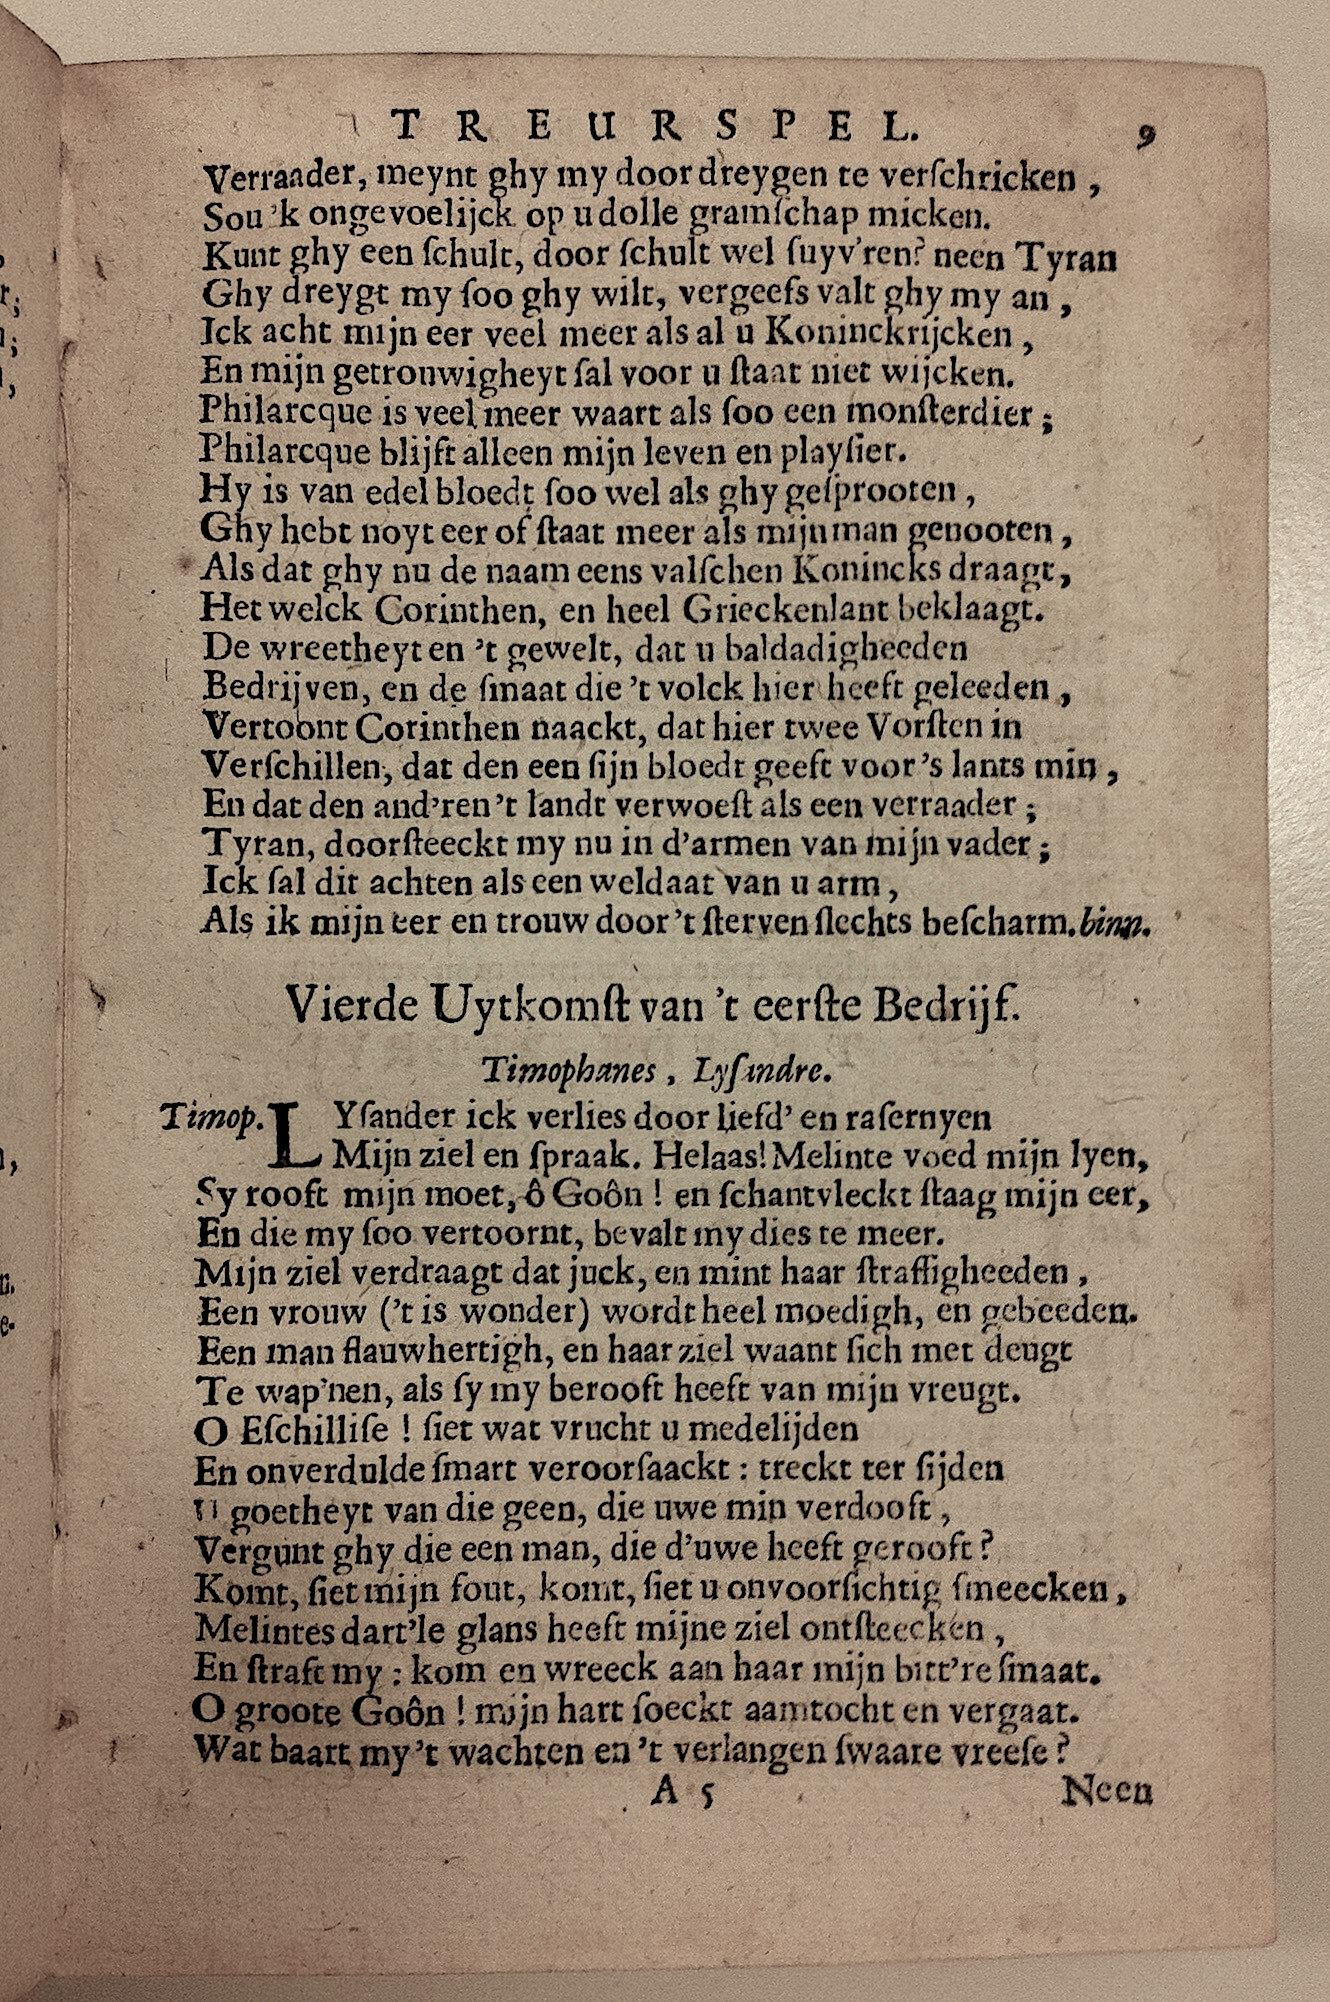 TREURSPEL. 9
Verraader, meynt ghy my door dreygen te verſchricken,
Sou 'k ongevoelijck op u dolle gramſchap micken.
Kunt ghy een ſchult, door ſchult wel ſuyv'ren? neen Tyran
Ghy dreygt my ſoo ghy wilt, vergeefs valt ghy my an,
Ick acht mijn eer veel meer als al u Koninckrijcken,
En mijn getrouwigheyt ſal voor u ſtaat niet wijcken.
Philarcque is veel meer waart als ſoo een monſterdier;
Philarcque blijft alleen mijn leven en playſier.
Hy is van edel bloedt ſoo wel als ghy geſprooten,
Ghy hebt noyt eer of ſtaat meer als mijn man genooten,
Als dat ghy nu de naam eens valſchen Konincks draagt,
Het welck Corinthen, en heel Grieckenlant beklaagt.
De wreetheyt en 't gewelt, dat u baldadigheeden
Bedrijven, en de ſmaat die 't volck hier heeft geleeden,
Vertoont Corinthen naackt, dat hier twee Vorſten in
Verſchillen, dat den een ſijn bloedt geeft voor 's lants min,
En dat den and'ren 't landt verwoeſt als een verraader;
Tyran, doorſteeckt my nu in d'armen van mijn vader;
Ick ſal dit achten als een weldaat van u arm,
Als ik mijn eer en trouw door 't ſterven ſlechts beſcharm. binn.
Vierde Uytkomſt van 't eerſte Bedrijf.
Timophanes, Lyſandre.
Timop. LYſander ick verlies door liefd' en raſernyen
Mijn ziel en ſpraak. Helaas! Melinte voed mijn lyen,
Sy rooft mijn moet, ô Goôn! en ſchantvleckt ſtaag mijn eer,
En die my ſoo vertoornt, bevalt my dies te meer.
Mijn ziel verdraagt dat juck, en mint haar ſtraffigheeden,
Een vrouw ('t is wonder) wordt heel moedigh, en gebeeden.
Een man flauwhertigh, en haar ziel waant ſich met deugt
Te wap'nen, als ſy my berooft heeft van mijn vreugt.
O Eſchilliſe! ſiet wat vrucht u medelijden
En onverdulde ſmart veroorſaackt: treckt ter ſijden
U goetheyt van die geen, die uwe min verdooft,
Vergunt ghy die een man, die d'uwe heeft gerooft?
Komt, ſiet mijn fout, komt, ſiet u onvoorſichtig ſmeecken,
Melintes dart'le glans heeft mijne ziel ontſteecken,
En ſtraft my: kom en wreeck aan haar mijn bitt're ſmaat.
O groote Goôn! mijn hart ſoeckt aamtocht en vergaat.
Wat baart my 't wachten en 't verlangen ſwaare vreeſe?
A 5 Neen